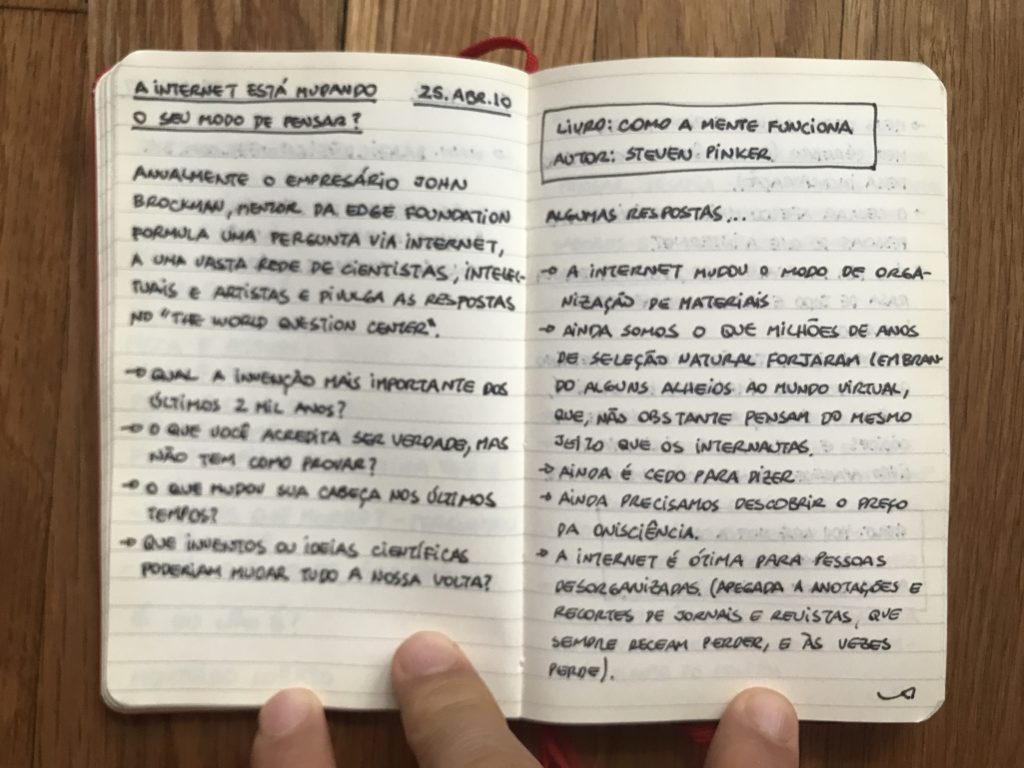 A INTERNET ESTÁ MUDANDO
O SEU MODO DE PENSAR?
25.ABR.10
ANUALMENTE O EMPRESÁRIO JOHN
BROCKMAN, MENTOR DA EDGE FOUNDATION
FORMULA UMA PERGUNTA VIA INTERNET,
A UMA VASTA REDE DE CIENTISTAS, INTELEC-
TUAIS E ARTISTAS E DIVULGA AS RESPOSTAS
NO "THE WORLD QUESTION CENTER".
→ QUAL A INVENÇÃO MAIS IMPORTANTE DOS
ÚLTIMOS 2 MIL ANOS?
→ O QUE VOCÊ ACREDITA SER VERDADE, MAS
NÃO TEM COMO PROVAR?
→ O QUE MUDOU SUA CABEÇA NOS ÚLTIMOS
TEMPOS?
→ QUE INVENTOS OU IDEIAS CIENTÍFICAS
PODERIAM MUDAR TUDO A NOSSA VOLTA?
LIVRO: COMO A MENTE FUNCIONA
AUTOR: STEVEN PINKER
ALGUMAS RESPOSTAS...
→ A INTERNET MUDOU O MODO DE ORGA-
NIZAÇÃO DE MATERIAIS
→ AINDA SOMOS O QUE MILHÕES DE ANOS
DE SELEÇÃO NATURAL FORJARAM (EMBRAN-
DO ALGUNS ALHEIOS AO MUNDO VIRTUAL,
QUE, NÃO OBSTANTE PENSAM DO MESMO
JEITO QUE OS INTERNAUTAS.
→ AINDA É CEDO PARA DIZER
→ AINDA PRECISAMOS DESCOBRIR O PREÇO
DA ONISCIÊNCIA.
→ A INTERNET É ÓTIMA PARA PESSOAS
DESORGANIZADAS. (APEGADA A ANOTAÇÕES E
RECORTES DE JORNAIS E REVISTAS, QUE
SEMPRE RECEAM PERDER, E ÀS VEZES
PERDE).